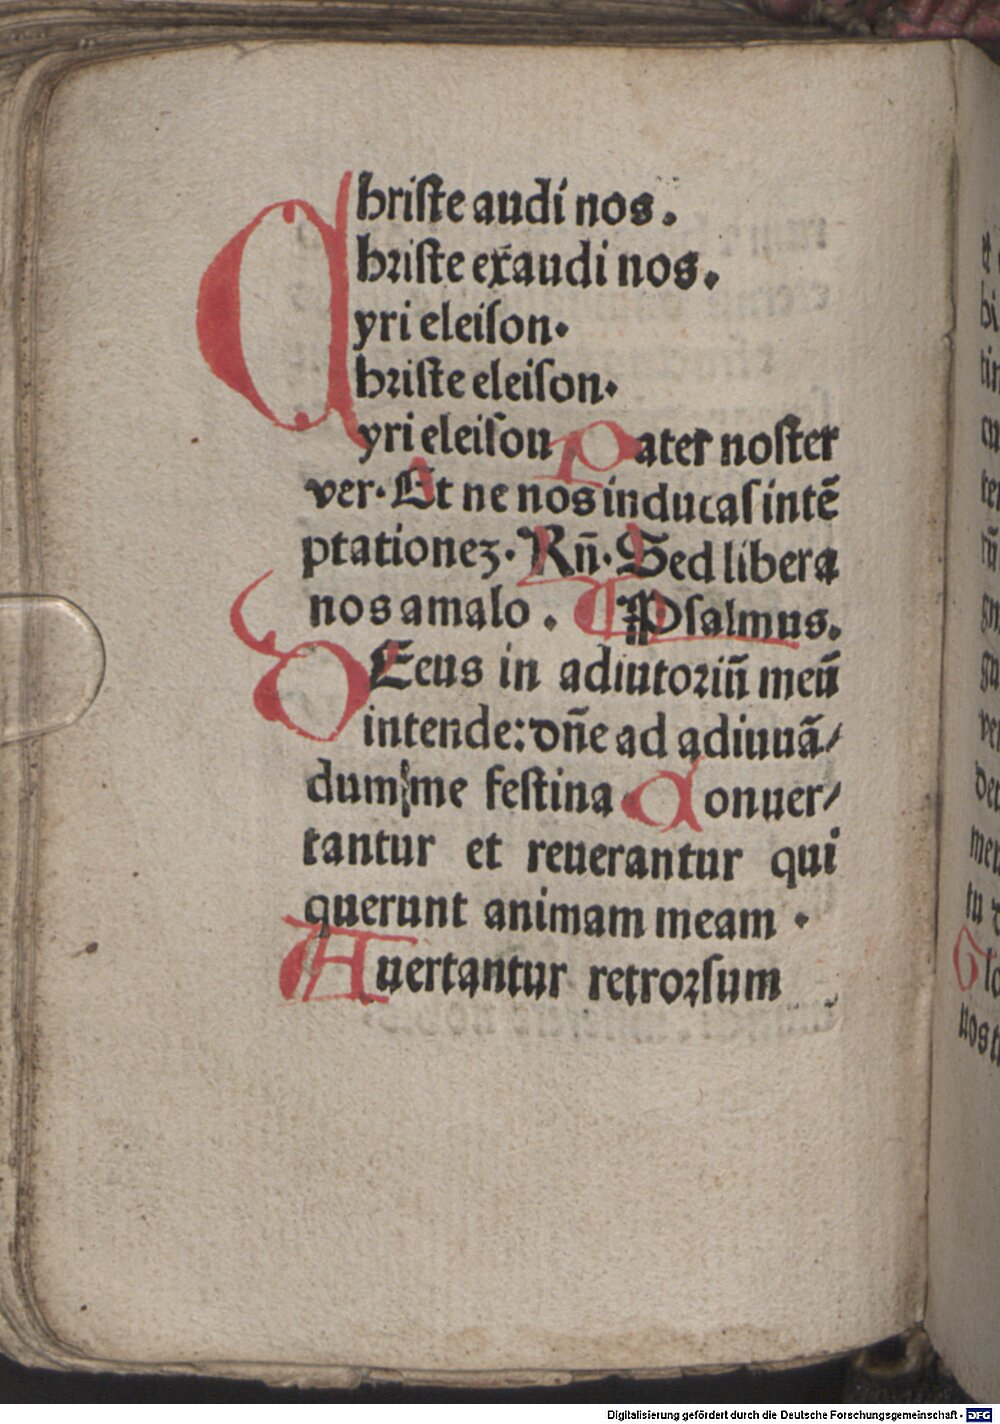 Christe audi nos.
briste exaudi nos.
yri eleison.
briste eleison.
yri eleison Pater noster
ver. Et ne nos inducas intē
ptationez. Rñ. Sed libera
nos a malo. ¶ Psalmus.
DEeus in adiutoriū meū
intende: dñe ad adiuuā/
dum me festina Conuer/
tantur et reuerantur qui
querunt animam meam .
Auertantur retrorsum
Digitalisierung gefördert durch die Deutsche Forschungsgemeinschaft - DFG